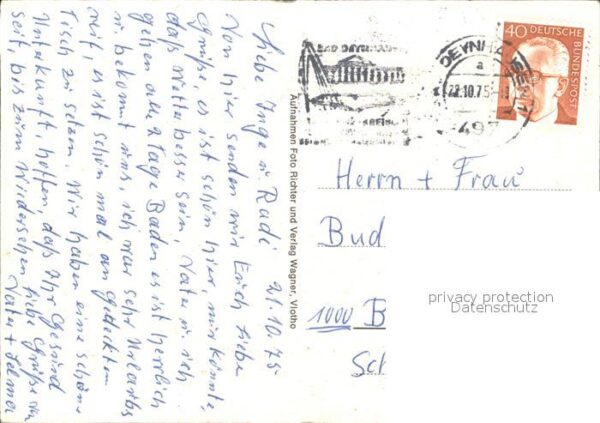 21.10.75
Liebe Inge u Rudi
Von hier senden wir Euch liebe
Grüße, es ist schön hier, nur könnte
das Wetter besser sein, Vater u ich
gehen alle 2 Tage Baden es ist herrlich
u bekommt uns, ich war sehr Urlaubs
reif, es ist schön mal am gedeckten
Tisch zu sitzen. Wir haben eine schöne
Unterkunft, hoffen, daß Ihr Gesund
seit, bis zum Wiedersehen liebe Grüße von
Vater +
Aufnahmen Foto Richter und Verlag Wagner, Vlotho
BAD OEYNHAUSEN
OEYNHAUSEN 1
a
22.10.75
497
40
DEUTSCHE
BUNDESPOST
Herrn + Frau
Bud
1000 B
Sch
privacy protection
Datenschutz